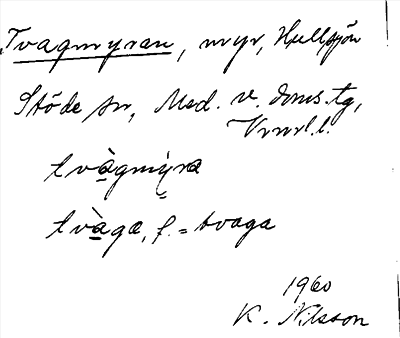 Tvagmyran, myr, Hullsjön
Stöde sn, Med. v. doms.tg,
Vrnrl. l.
tvàgmỳra
tvàga, f. = tvaga
1960
K. Nilsson